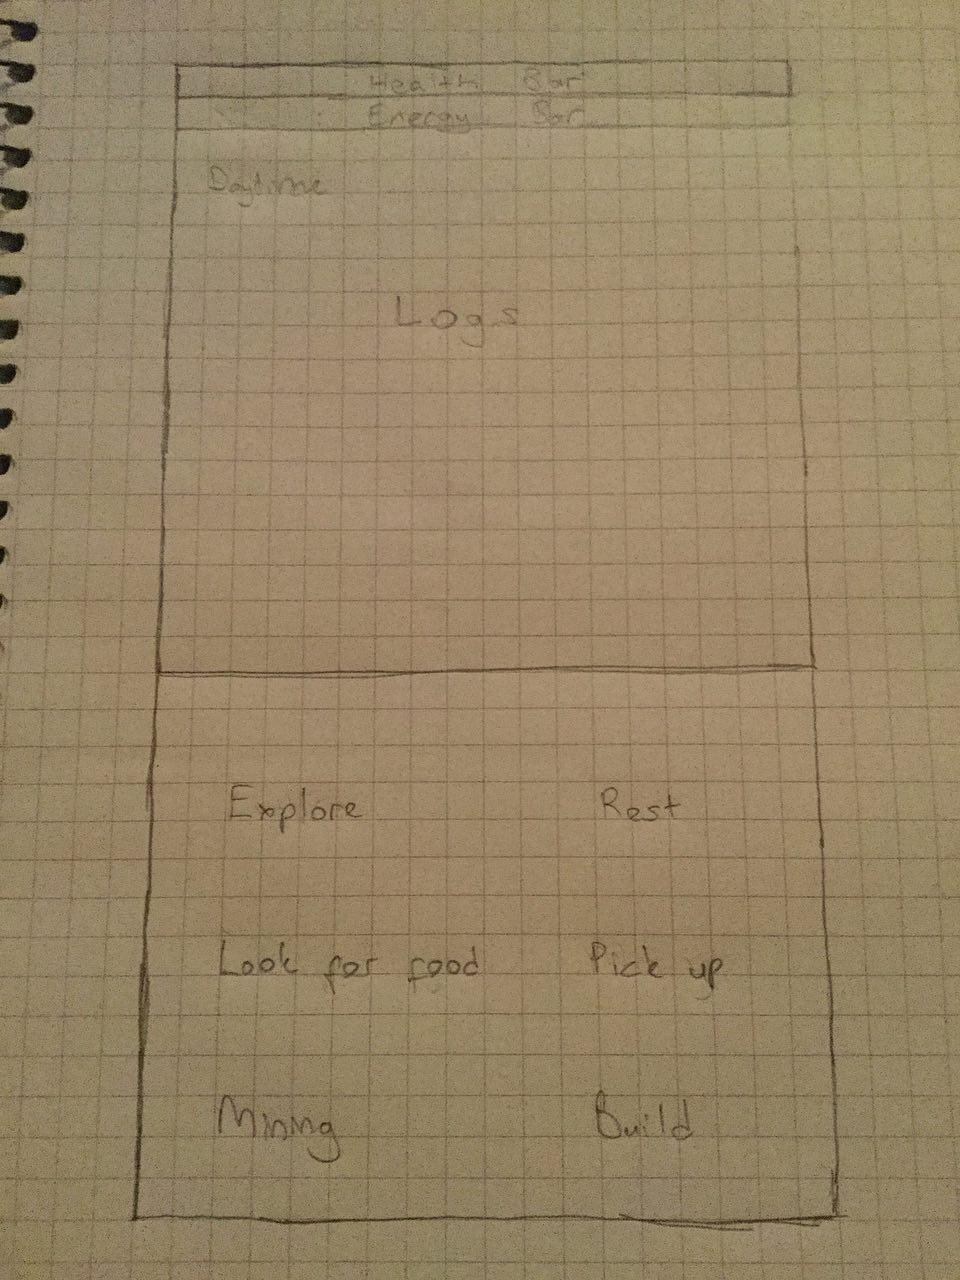 Health Bar
Energy Bar
Daytime
Logs
Explore Rest
Look for food Pick up
Mining Build